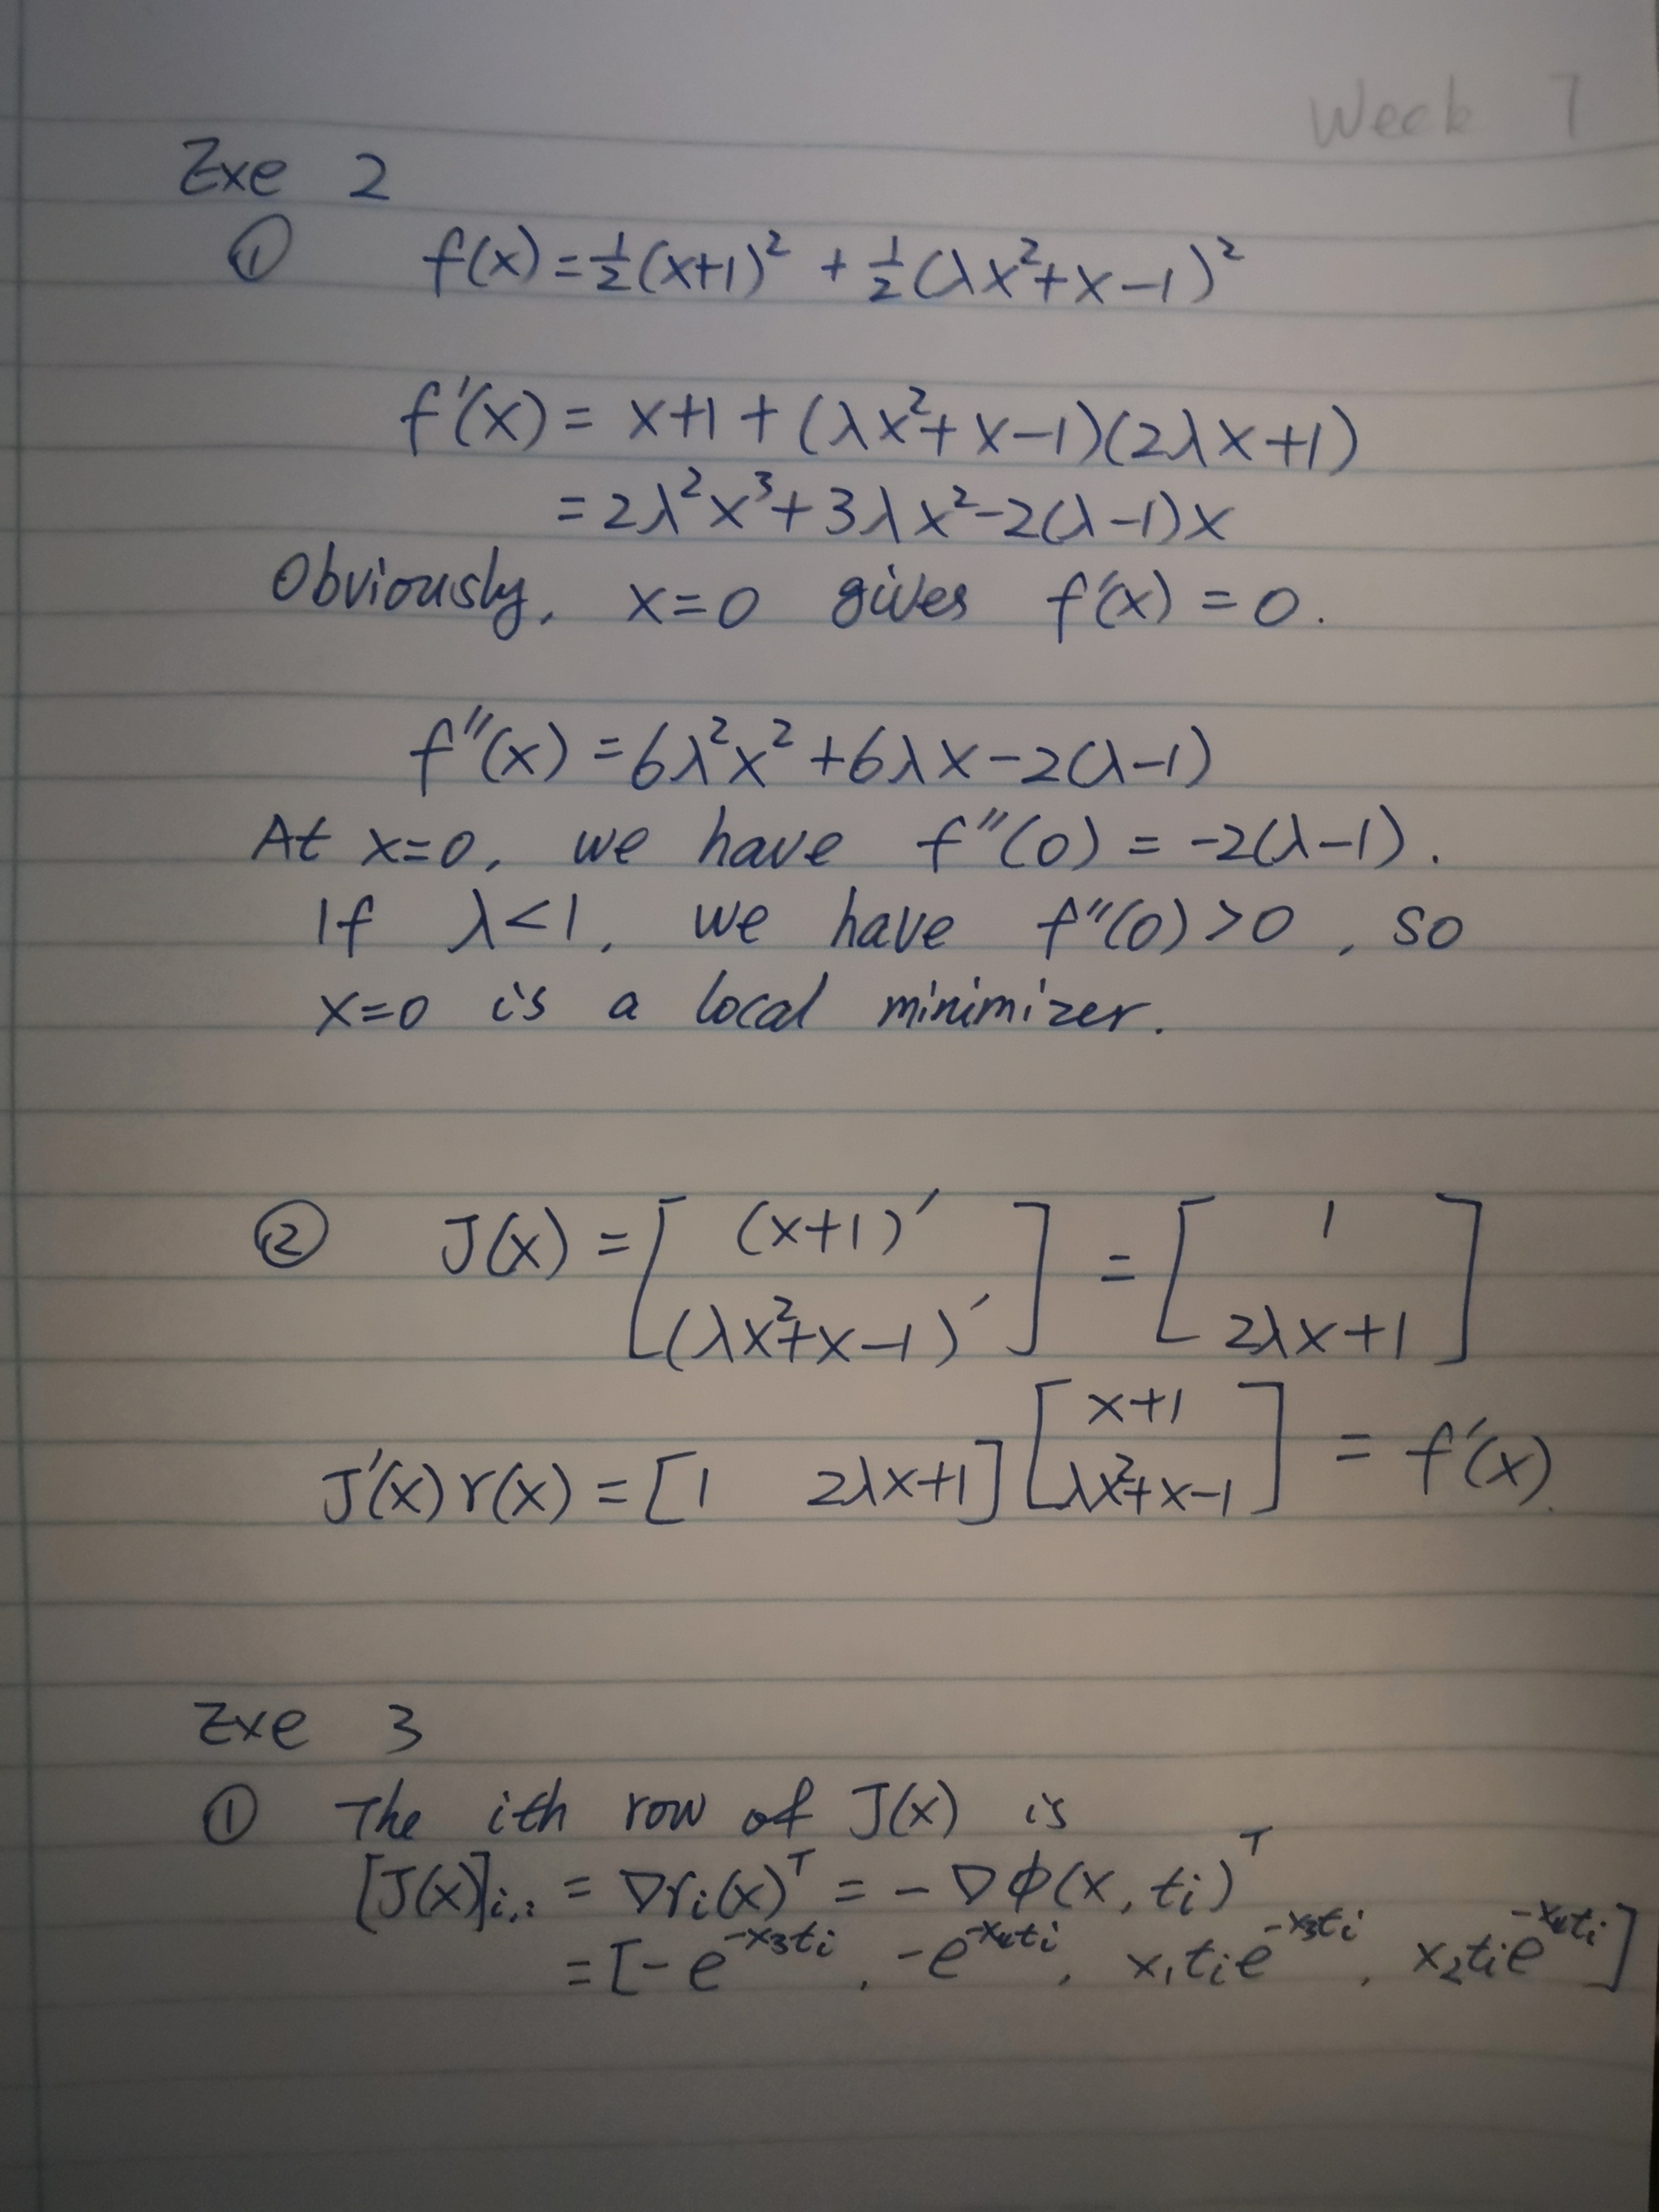 Week 7
Exe 2
① f(x) = ½(x+1)² + ½(λx²+x−1)²
f′(x) = x+1 + (λx²+x−1)(2λx+1)
= 2λ²x³+3λx²−2(λ−1)x
Obviously, x=0 gives f′(x) = 0.
f″(x) = 6λ²x²+6λx−2(λ−1)
At x=0, we have f″(0) = −2(λ−1).
If λ<1, we have f″(0)>0, so
x=0 is a local minimizer.
② J(x) = [ (x+1)′ ; (λx²+x−1)′ ] = [ 1 ; 2λx+1 ]
J′(x) r(x) = [1 2λx+1] [ x+1 ; λx²+x−1 ] = f′(x).
Exe 3
① The ith row of J(x) is
[J(x)]i,: = ∇ri(x)^T = −∇ϕ(x, ti)^T
= [−e^{−x₃ti}, −e^{−x₄ti}, x₁tie^{−x₃ti}, x₂tie^{−x₄ti}]